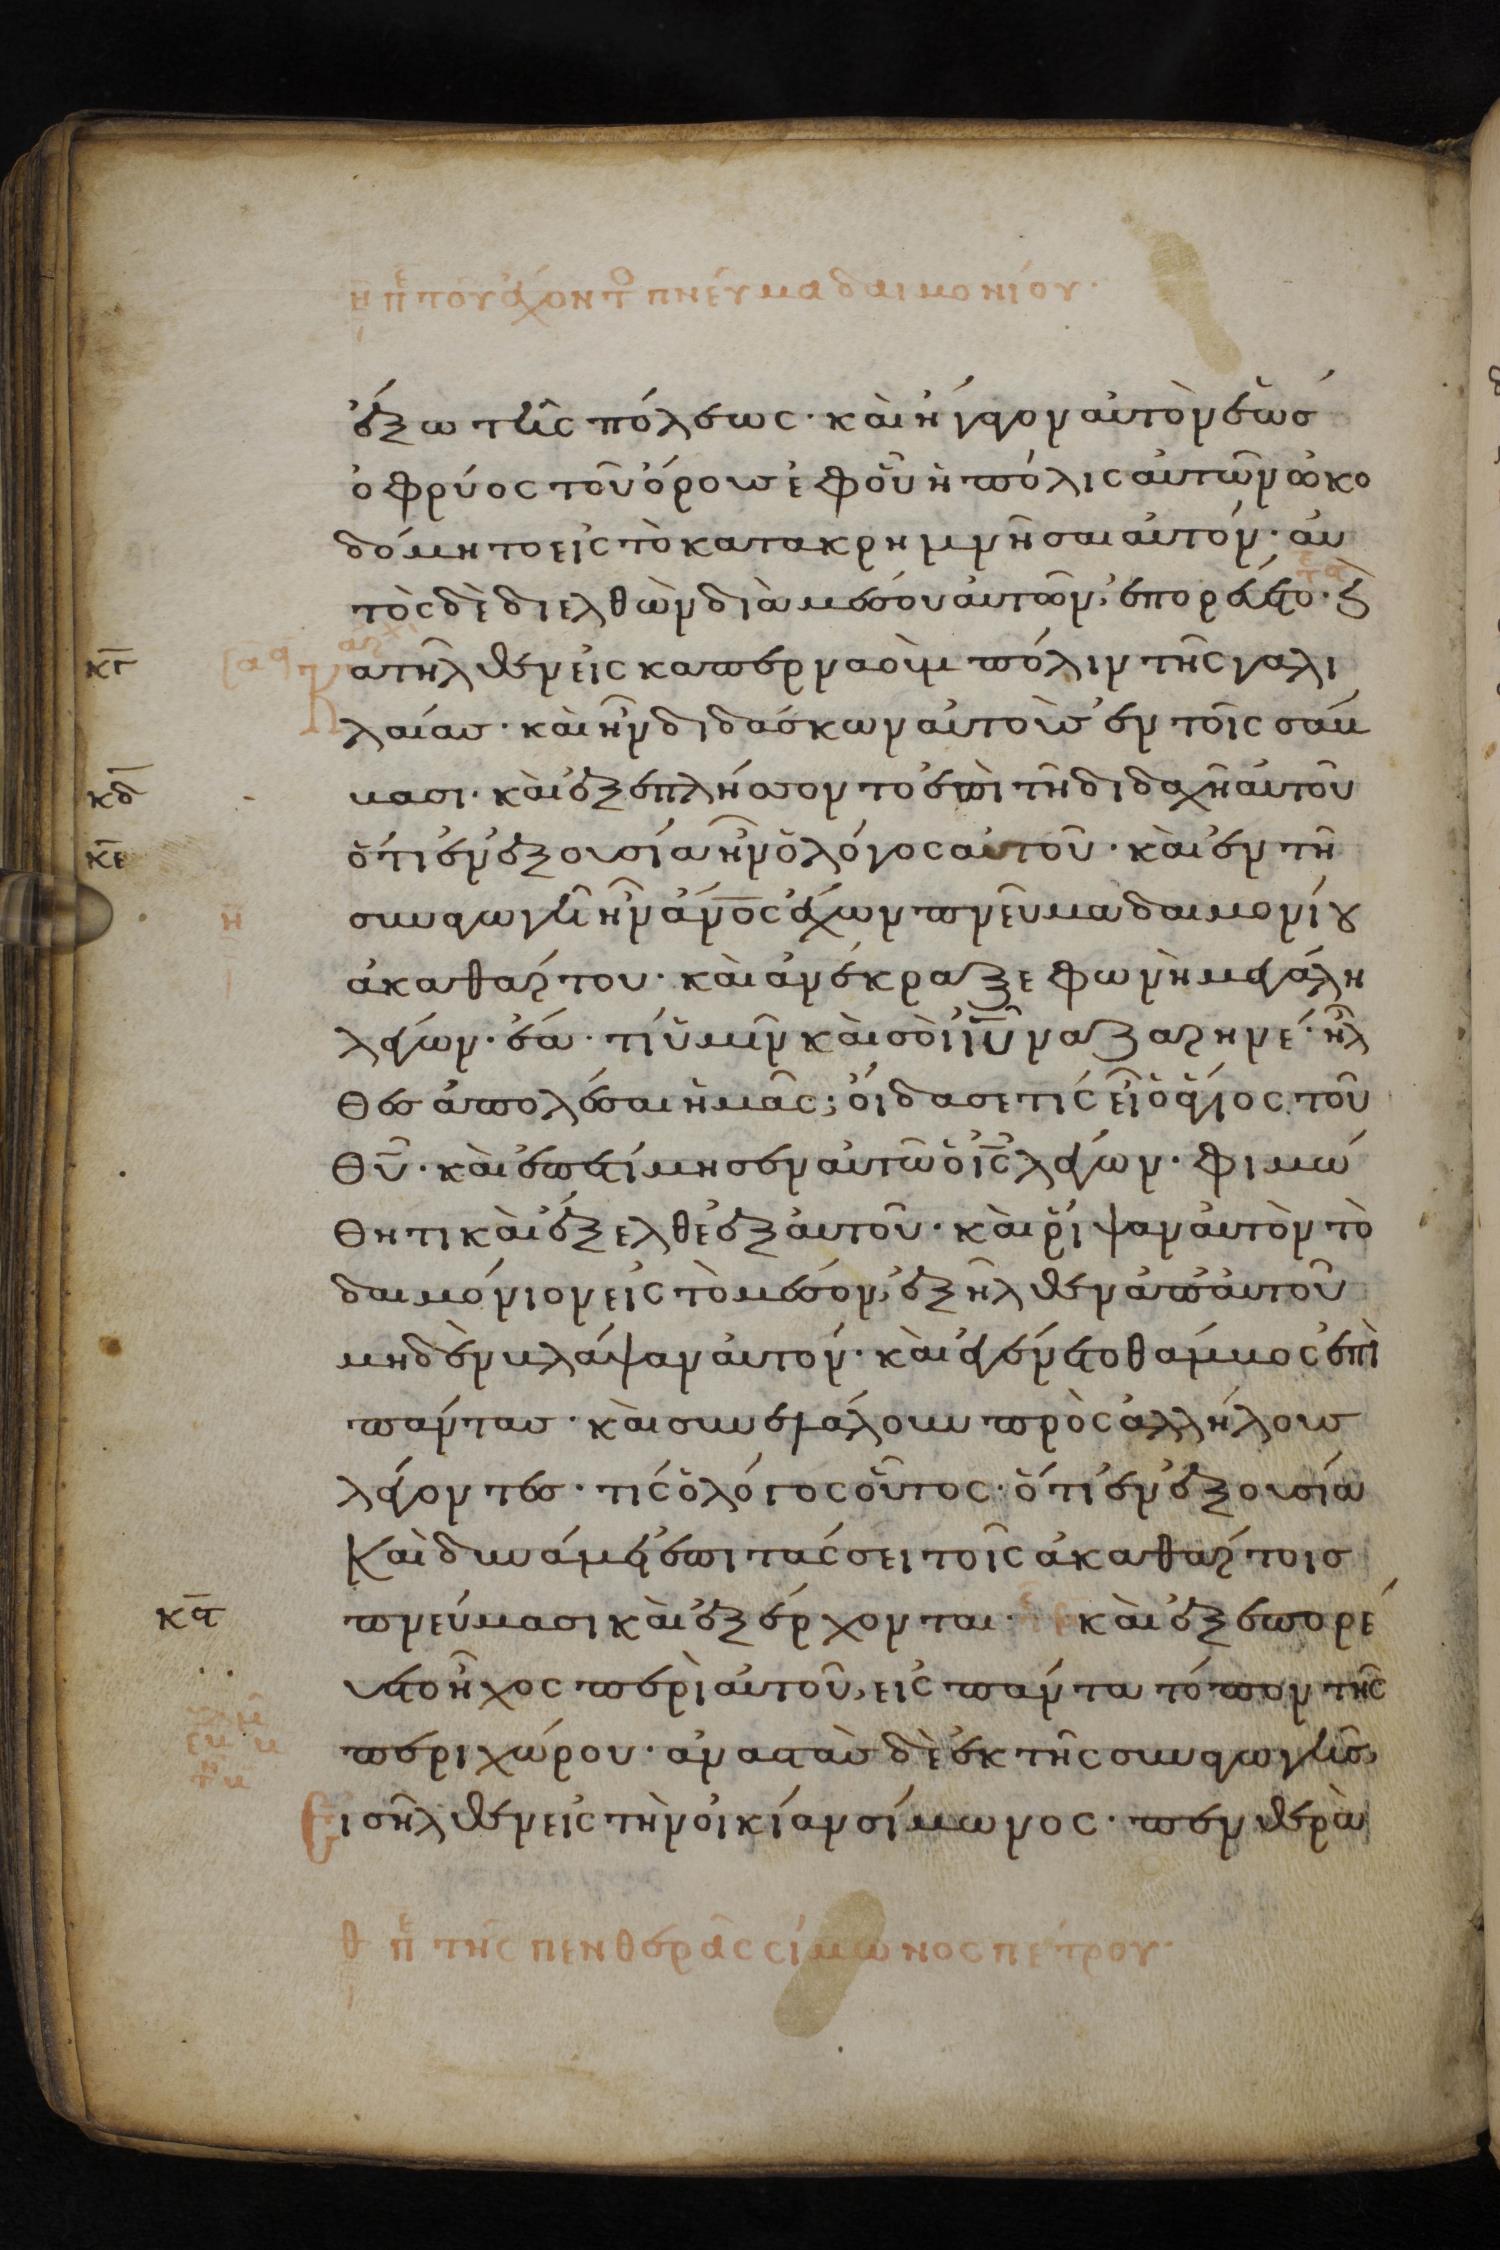 η πε του έχοντος πνεύμα δαιμονίου·
ἔξω τῆς πόλεως· καὶ ἤγαγον αὐτὸν ἕως
ὀφρύος τοῦ ὄρους ἐφ οὗ ἡ πόλις αὐτῶν ὠκο
δόμητο εἰς τὸ κατακρημνῆσαι αὐτόν· αυ
τὸς δὲ διελθὼν διὰ μέσου αὐτῶν, ἐπορεύετο· (καὶ)
κατῆλθεν εἰς καπερναοὺμ πόλιν τῆς γαλι
κγ
λαίας· καὶ ἦν διδάσκων αὐτοὺς ἐν τοῖς σάμ
μασι· καὶ ἐξεπλήσσοντο ἐπὶ τῆ διδαχῆ αὐτοῦ
κδ
ὅτι ἐν ἐξουσία ἦν ὁ λόγος αὐτοῦ· καὶ ἐν τῆ
κε
συναγωγῆ ἦν ἄνος ἔχων πνεῦμα δαιμονίου
η
ἀκαθάρτου· καὶ ἀνέκραξε φωνὴ μεγάλη
λέγων· ἔα· τί ὑμῖν καὶ σοὶ ιῦ ναζαρηνέ· ἦλ
θες ἀπολέσαι ἡμᾶς; οἶδα σε τίς εἶ ὁ ἅγιος τοῦ
θυ· καὶ ἐπετίμησεν αὐτῶ ὁ ις λέγων· φιμώ
θητι καὶ ἔξελθε ἐξ αὐτοῦ· καὶ ῥίψαν αὐτὸν τὸ
δαιμόνιον εἰς τὸ μέσον, ἐξῆλθεν ἀπ αὐτοῦ
μηδὲν βλάψαν αὐτόν· καὶ ἐγένετο θάμβος ἐπὶ
πάντας· καὶ συνελάλουν πρὸς ἀλλήλους
λέγοντες· τίς ὁ λόγος οὗτος· ὅτι ἐν ἐξουσία
καὶ δυνάμει ἐπιτάσσει τοῖς ἀκαθάρτοις
πνεύμασι καὶ ἐξέρχονται· καὶ ἐξεπορεύ
κϛ
ετο ἦχος περὶ αὐτοῦ, εἰς πάντα τόπον τῆς
περιχώρου· ἀναστὰς δὲ ἐκ τῆς συναγωγῆς,
Εἰσῆλθεν εἰς τὴν οἰκίαν σίμωνος· πενθερὰ
θ πε τῆς πενθερᾶς σίμωνος πέτρου·